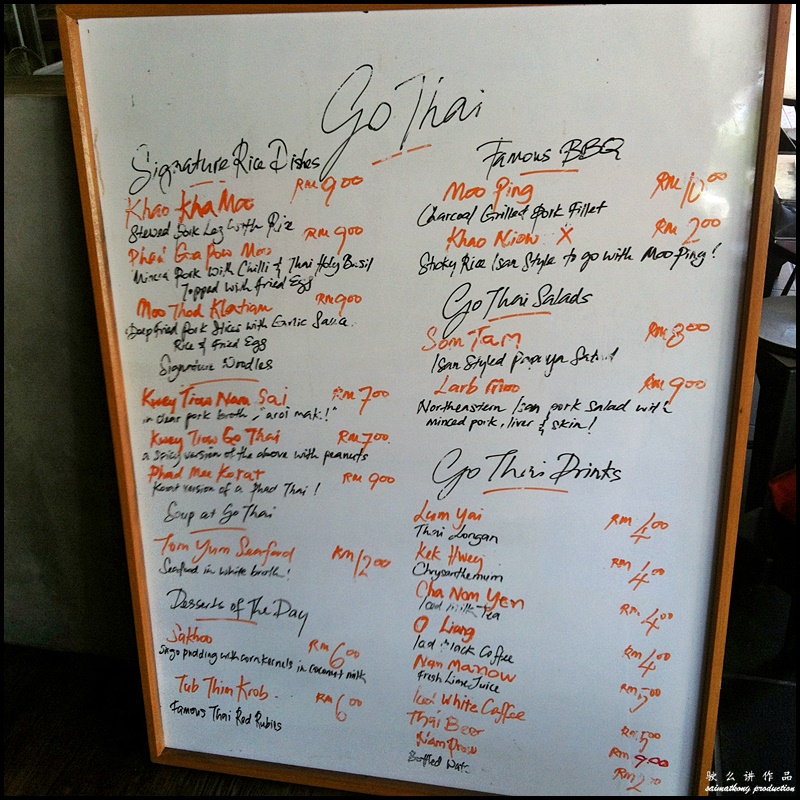 Go Thai
Signature Rice Dishes
Khao Kha Moo RM 9.00
Stewed Pork Leg with Rice
Phad Ga Pow Moo RM 9.00
Mince Pork with Chilli & Thai Holy Basil
Topped with fried Egg
Moo Thod Klatiam RM 9.00
Deepfried Pork Slices with Garlic Sauce.
Rice & Fried Egg
Signature Noodles
Kwey Tiow Nam Sai RM 7.00
in clear pork broth, "aroi mak!"
Kwey Tiow Go Thai RM 7.00
a spicy version of the above with peanuts
Phad Mee Korat RM 9.00
Korat version of a Phad Thai!
Soup at Go Thai
Tom Yum Seafood RM 12.00
Seafood in white broth!
Desserts of The Day
Sakhoo RM 6.00
Sago pudding with corn kernels in coconut milk
Tub Thim Krob. RM 6.00
Famous Thai Red Rubies
Famous BBQ
Moo Ping RM 10.00
Charcoal Grilled Pork Fillet
Khao Niow X RM 2.00
Sticky Rice Isan Style to go with Moo Ping!
Go Thai Salads
Som Tam RM 8.00
Isan Styled Papaya Salad
Larb Moo RM 9.00
Northeastern Isan pork salad with
minced pork, liver & skin!
Go Thai Drinks
Lum Yai RM 4.00
Thai Longan
Kek Hwey RM 4.00
Chrysanthemum
Cha Nom Yen RM 4.00
Iced Milk Tea
O Liang RM 4.00
Iced Black Coffee
Nan Manow RM 5.00
Fresh Lime Juice
Iced White Coffee RM 5.00
Thai Beer RM 9.00
Nam Plow RM 2.00
Bottled Water
骏么讲作品
saimatkong production